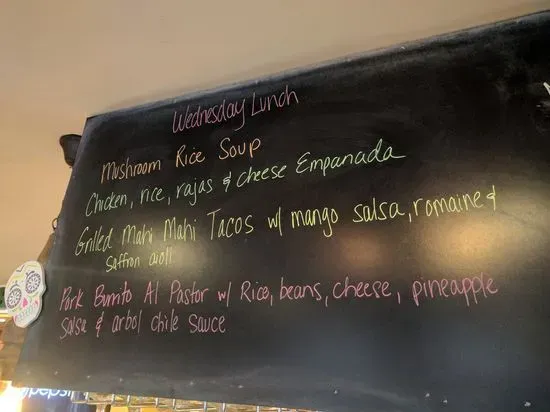 Wednesday Lunch
Mushroom Rice Soup
Chicken, rice, rajas & cheese Empanada
Grilled Mahi Mahi Tacos w/ mango salsa, romaine &
saffron aioli
Pork Burrito Al Pastor w/ Rice, beans, cheese, pineapple
salsa & arbol chile sauce
pepsi